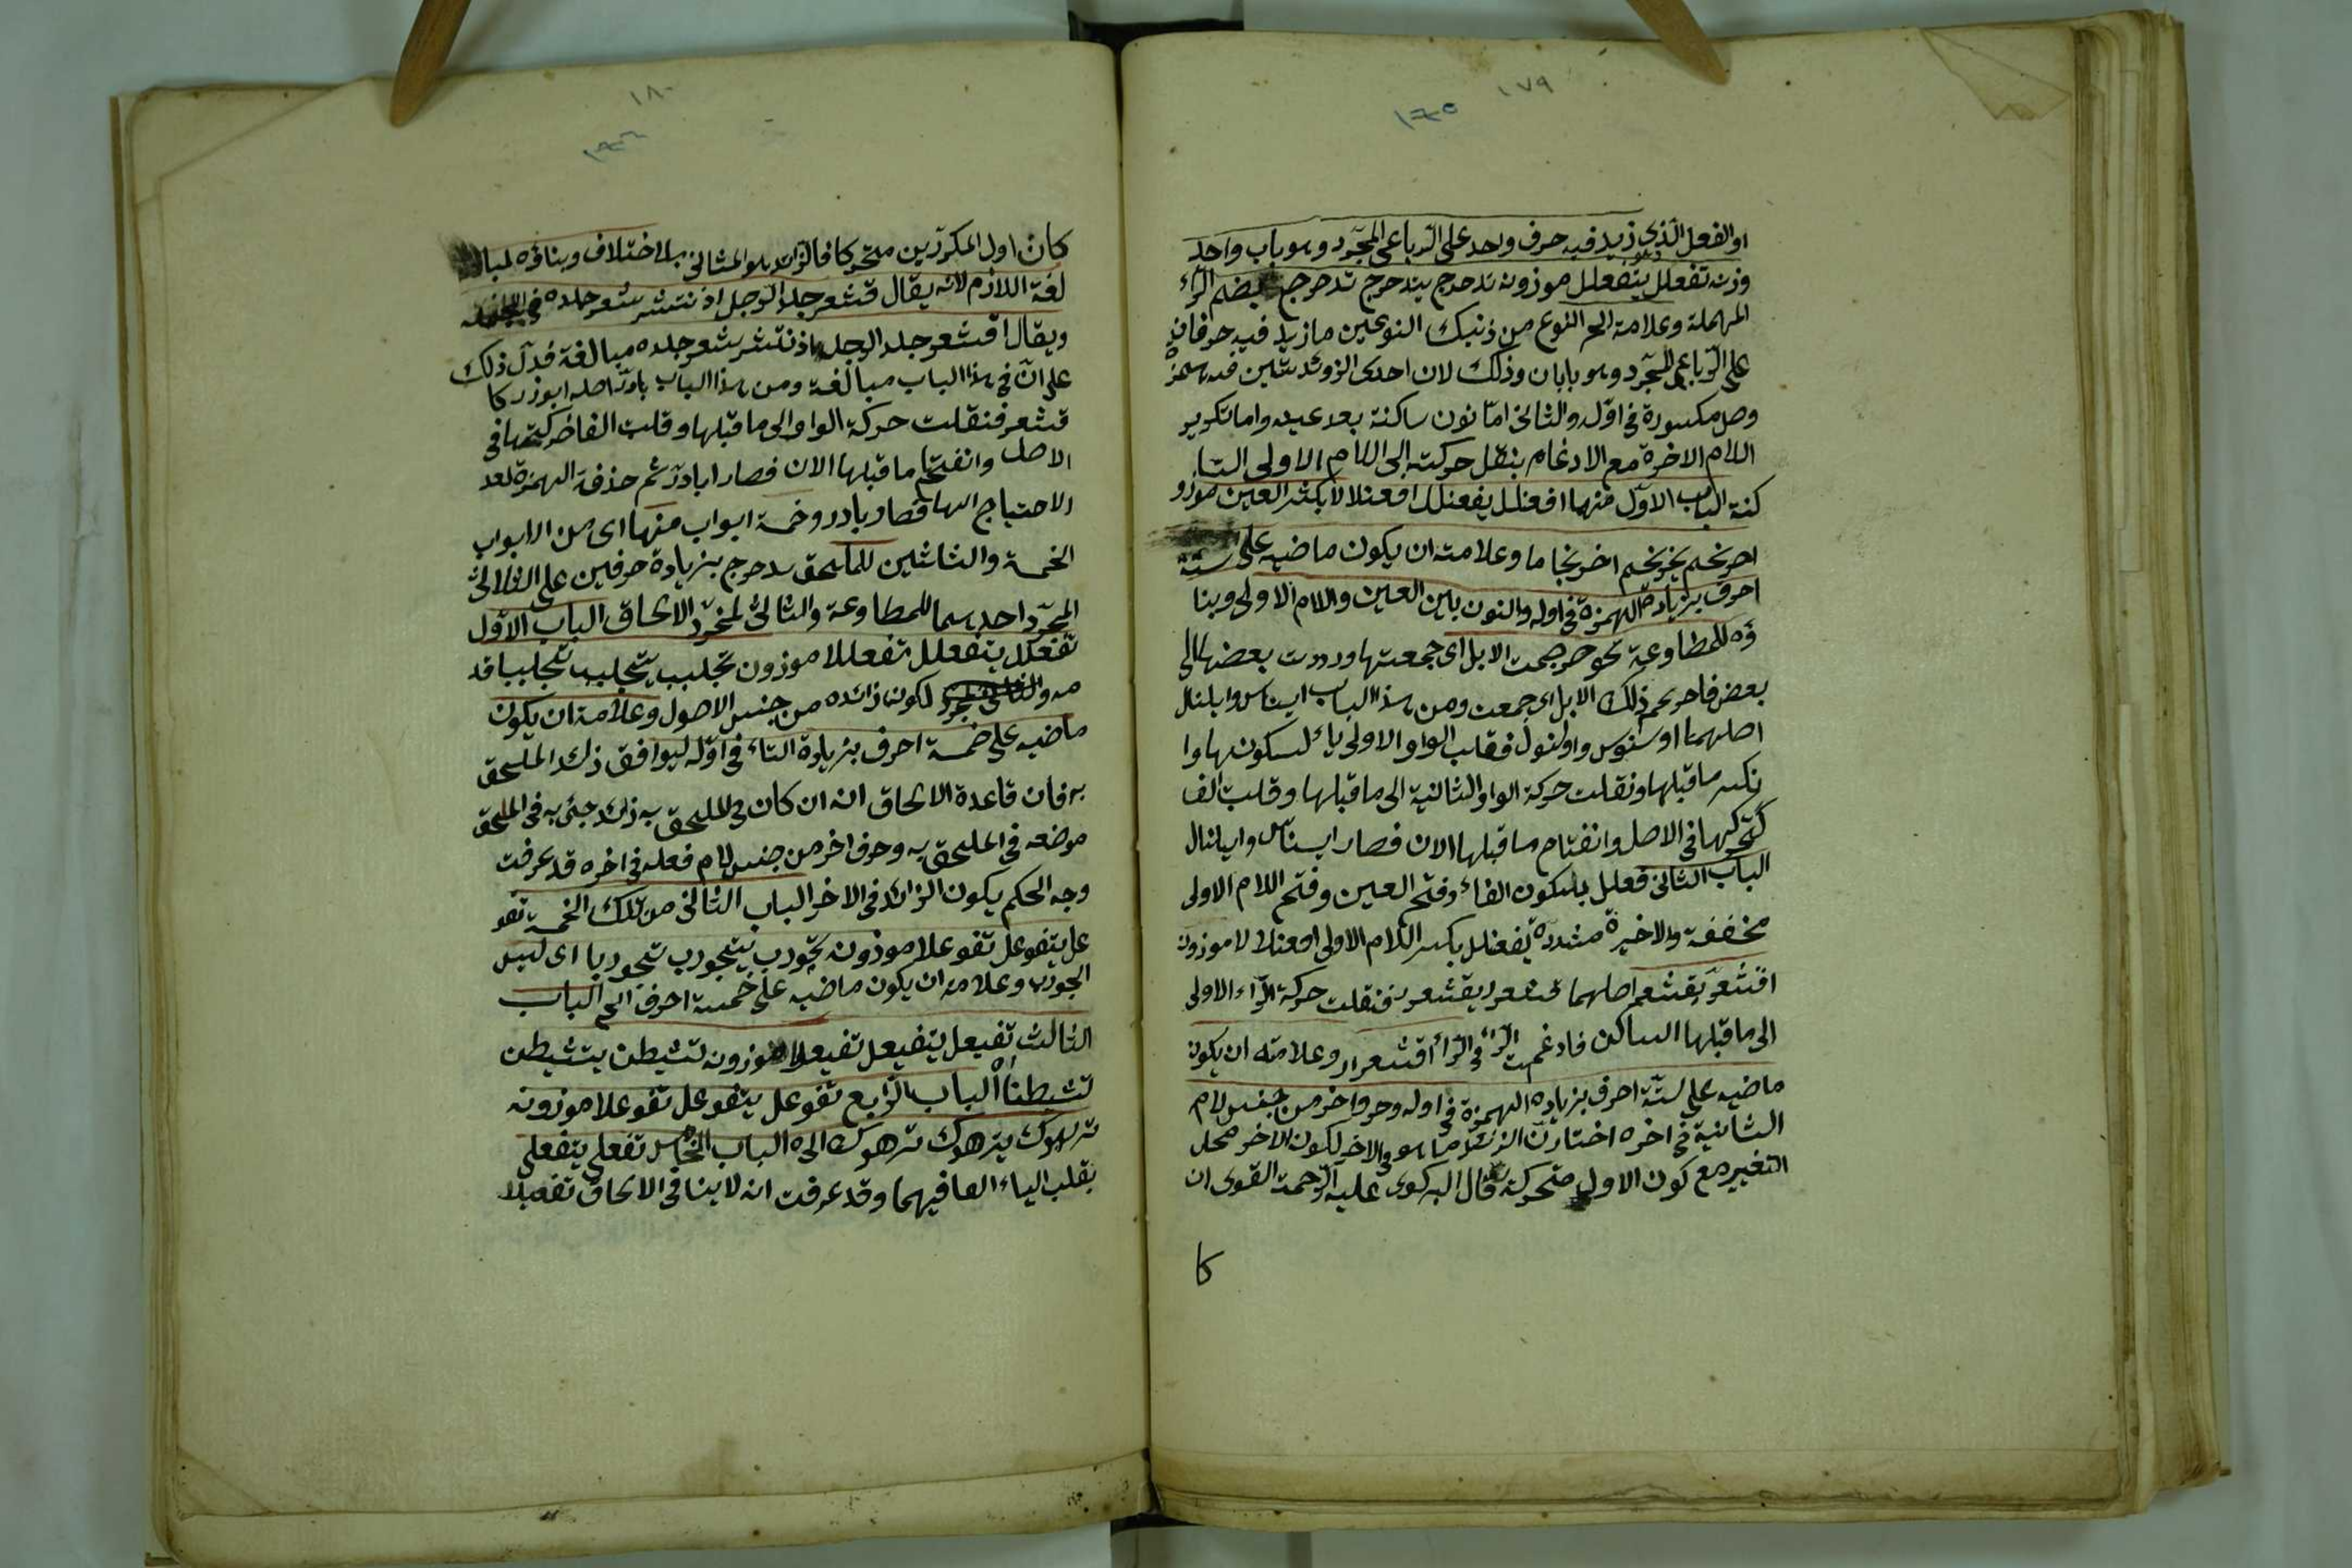 ١٧٩
او الفعل الّذى زيد فيه حرف واحد على الرّباعى المجرّد وهو باب واحد
وزنه تفعلل يتفعلل موزونه تدحرج يتدحرج تدحرج بضم الرّاء
المهملة وعلامة الخ النوع من ذنيك النوعين مازيد فيه حرفان
على الرّباعى المجرّد وهو بابان وذلك لان احدى الزوئد تين فيه همزة
وصل مكسورة فى اوّله والثانى امّا نون ساكنة بعد عينه واما تكرير
اللام الاخرة مع الادغام بنقل حركته الى اللام الاولى السا
كنة الباب الاوّل منهما افعنلل يفعنلل افعنلالا بكسر العين موزو
احرنجم يحرنجم احرنجاما وعلامته ان يكون ماضيه على ستّة
احرف بزيادة الهمزة فى اوله والنون بين العين واللام الاولى وبنا
ؤه للمطاوعة نحو حرجمت الابل اى جمعتها ورددت بعضها الى
بعض فاحرنجم ذلك الابل اى جمعت ومن هذا الباب ايناس وايلنال
اصلهما اوسنوس واولنول فقلب الواو الاولى ياء لسكونها وا
نكسر ماقبلها ونقلت حركة الواو الثانية الى ماقبلها وقلبت الفا
لتحركها فى الاصل وانفتاح ماقبلها الان فصار ايسناس وايلنال
الباب الثانى فعلل بسكون الفاء وفتح العين وفتح اللام الاولى
مخففة والاخيرة مشددة يفعلل بكسر اللام الاولى افعنلالا موزونه
اقشعرّ يقشعر اصلهما قشعرر يقشعرر فنقلت حركة الرّاء الاولى
الى ماقبلها الساكن فادغمت الرّاء فى الرّاء اقشعرار وعلامته ان يكون
ماضيه على ستّة احرف بزيادة الهمزة فى اوله وحرف اخر من جنس لام
الثانية فى اخره اختار انّ الزئد ما هو فى الاخر لكون الاخر محل
التغير مع كون الاول متحركة قال البركوى عليه الرّحمة القوى ان
كا
١٨٠
كان اول المكررّين متحركا فالزائد هو المثانى بلا اختلاف وبناؤه لمبالغة
لغة اللازم لانّه يقال قشعر جلد الرجل اذ نتشر شعر جلده فى الجمله
ويقال اقشعر جلد الرجل اذ نتشر شعر جلده مبالغة فدلّ ذلك
على انّ فى هذا الباب مبالغة ومن هذا الباب بادرّ اصله ابوذر كا
قشعر فنقلت حركة الواو الى ماقبلها وقلبت الفا لتحركها فى
الاصل وانفتح ماقبلها الان فصار ابادرّ ثم حذفة الهمزة لعد
الاحتياج اليها فصار بادر وخمسة ابواب منها اى من الابواب
الخمسة والثاثين للملحق بدحرج بزيادة حرفين على الثلاثى
المجرّد احدهما للمطاوعة والثانى لمجرّد الالحاق الباب الاوّل
تفعلل يتفعلل تفعللا موزون تجلبب يتجلبب تجلببا قد
مه والثانى لكون زائده من جنس الاصول وعلامته ان يكون
ماضيه على خمسة احرف بزيادة التاء فى اوّله ليوافق ذلك الملحق
به فان قاعدة الالحاق انه ان كان فى الملحق به زائد جئ به فى الملحق
موضعه فى الملحق به وحرف اخر من جنس لام فعله فى اخره قد عرفت
وجه الحكم يكون الزائد فى الاخر الباب الثانى من تلك الخمسة تفو
عل يتفوعل تفوعلا موزونه تجورب يتجورب تجوربا اى لبس
الجورب وعلامته ان يكون ماضيه على خمسة احرف الخ الباب
الثالث تفيعل يتفيعل تفيعلا موزونه تشيطن يتشيطن
تشيطنا الباب الرّابع تفوعل يتفوعل تفوعلا موزونه
ترهوك يترهوك ترهوك الى ه الباب الخامس تفعلى يتفعلى
بقلب الياء الفا فيهما وقد عرفت انه لاينا فى الالحاق تفعيلا